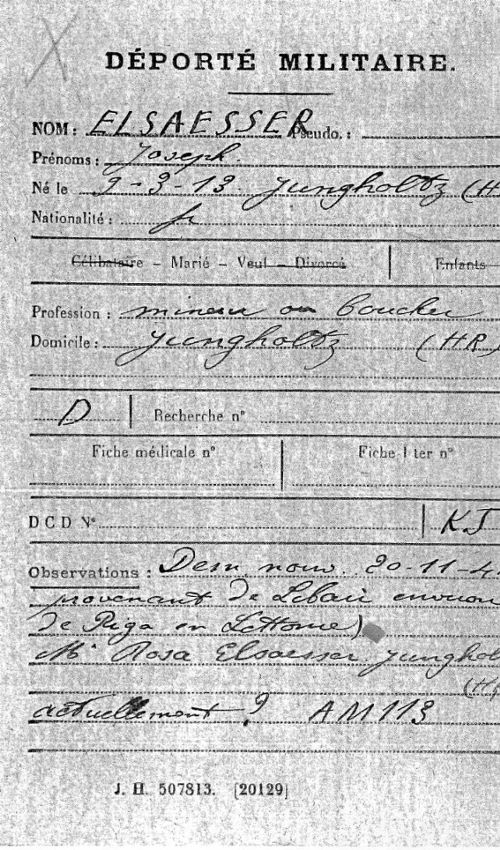 DÉPORTÉ MILITAIRE.
NOM : ELSAESSER Pseudo. :
Prénoms : Joseph
Né le 9-3-13 Jungholtz (H
Nationalité : fr
Célibataire - Marié - Veuf - Divorcé Enfants
Profession : mineur ou boucher
Domicile : Jungholtz (HR)
D Recherche n°
Fiche médicale n° Fiche 1 ter n°
D C D N° KJ
Observations : Dern nouv. 20-11-4
provenant de Libau environ
de Riga en Lettonie)
Me Rosa Elsaesser Junghol
(H
actuellement ? AM113
J. H. 507813. [20129]